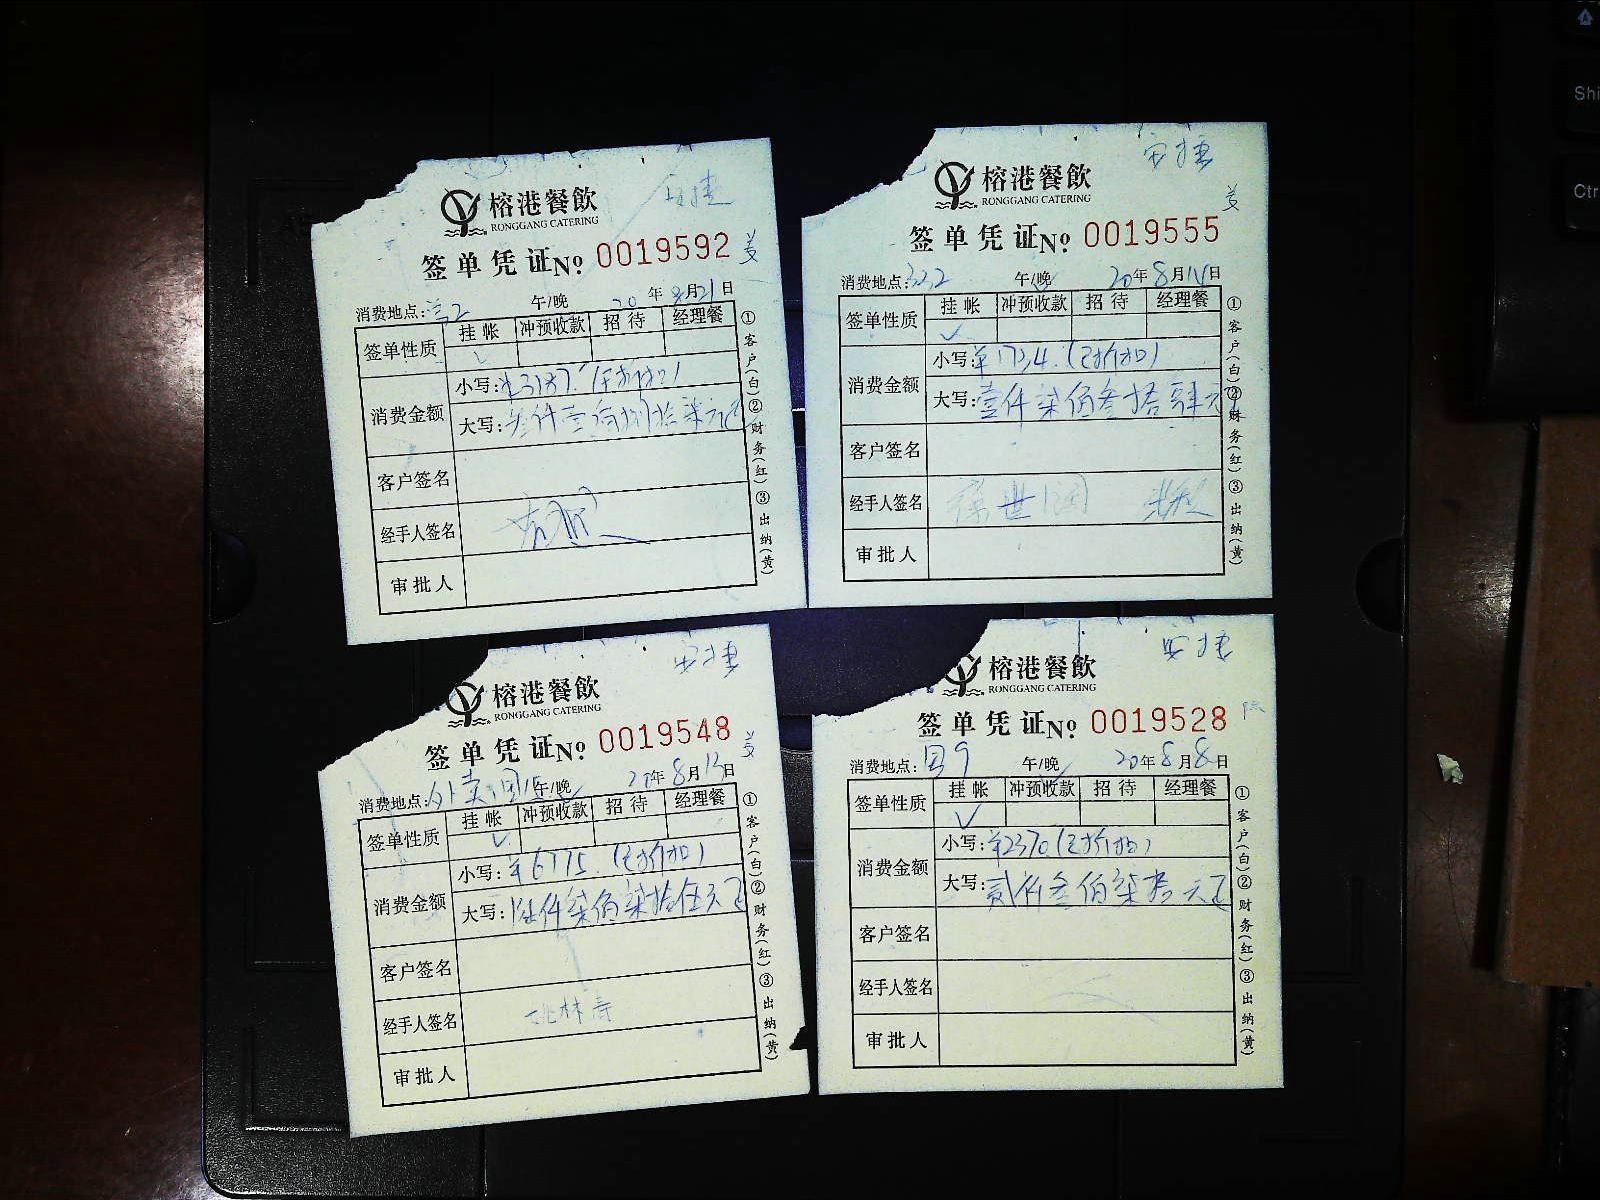 榕港餐飲
RONGGANG CATERING
签单凭证№ 0019592
消费地点: 午/晚 20年8月21日
签单性质 挂帐 冲预收款 招待 经理餐
消费金额 小写:¥3187.(已折扣)
大写:叁仟壹佰捌拾柒元正
客户签名
经手人签名
审批人
①客户(白)②财务(红)③出纳(黄)
安捷
榕港餐飲
RONGGANG CATERING
签单凭证№ 0019555
消费地点:332 午/晚 20年8月14日
签单性质 挂帐 冲预收款 招待 经理餐
消费金额 小写:¥1734.(已折扣)
大写:壹仟柒佰叁拾肆元
客户签名
经手人签名
审批人
①客户(白)②财务(红)③出纳(黄)
安捷
榕港餐飲
RONGGANG CATERING
签单凭证№ 0019548
消费地点:外卖 午/晚 20年8月13日
签单性质 挂帐 冲预收款 招待 经理餐
消费金额 小写:¥6775.(已折扣)
大写:陆仟柒佰柒拾伍元正
客户签名
经手人签名
审批人
①客户(白)②财务(红)③出纳(黄)
安捷
榕港餐飲
RONGGANG CATERING
签单凭证№ 0019528
消费地点: 午/晚 20年8月8日
签单性质 挂帐 冲预收款 招待 经理餐
消费金额 小写:¥2370(已折扣)
大写:贰仟叁佰柒拾元正
客户签名
经手人签名
审批人
①客户(白)②财务(红)③出纳(黄)
Shi
Ctr